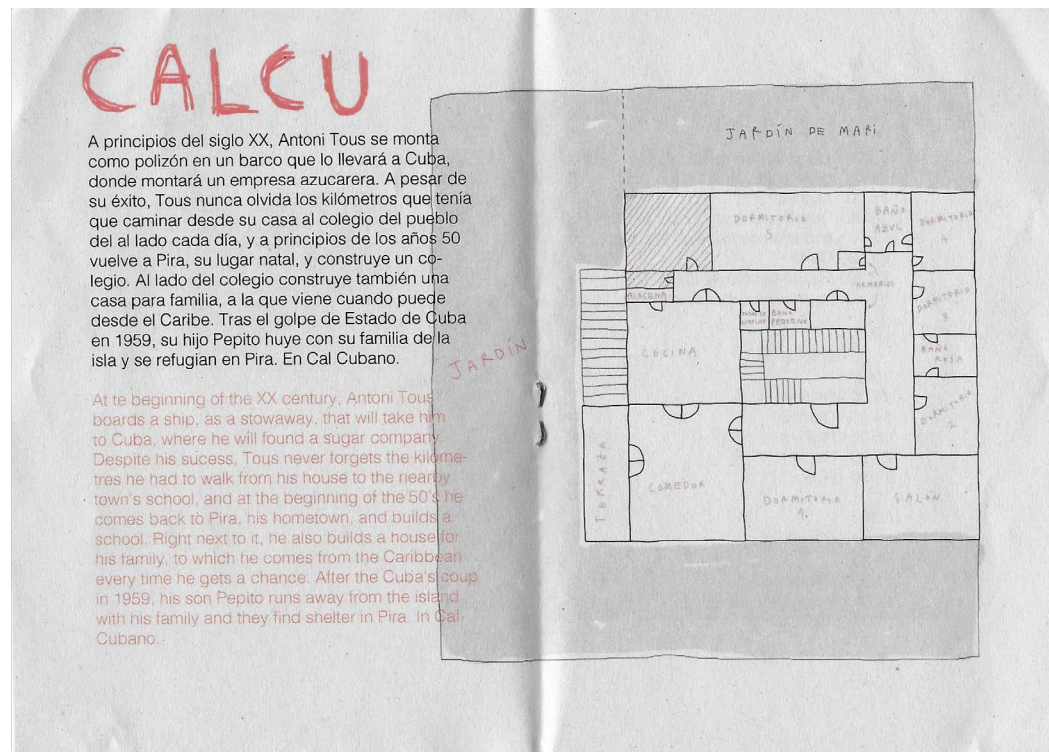 CALCU
A principios del siglo XX, Antoni Tous se monta
como polizón en un barco que lo llevará a Cuba,
donde montará un empresa azucarera. A pesar de
su éxito, Tous nunca olvida los kilómetros que tenía
que caminar desde su casa al colegio del pueblo
del al lado cada día, y a principios de los años 50
vuelve a Pira, su lugar natal, y construye un co-
legio. Al lado del colegio construye también una
casa para familia, a la que viene cuando puede
desde el Caribe. Tras el golpe de Estado de Cuba
en 1959, su hijo Pepito huye con su familia de la
isla y se refugian en Pira. En Cal Cubano.
At te beginning of the XX century, Antoni Tous
boards a ship, as a stowaway, that will take him
to Cuba, where he will found a sugar company.
Despite his sucess, Tous never forgets the kilome-
tres he had to walk from his house to the nearby
town's school, and at the beginning of the 50's he
comes back to Pira, his hometown, and builds a
school. Right next to it, he also builds a house for
his family, to which he comes from the Caribbean
every time he gets a chance. After the Cuba's coup
in 1959, his son Pepito runs away from the island
with his family and they find shelter in Pira. In Cal
Cubano.
JARDÍN DE MARI
DORMITORIO
5
BAÑO
AZUL
DORMITORIO
4
ALACENA
ARMARIOS
DORMITORIO
3
BAÑO
PEQUEÑO
COCINA
BAÑO
ROSA
JARDÍN
DORMITORIO
2
TERRAZA
COMEDOR
DORMITORIO
1
SALÓN